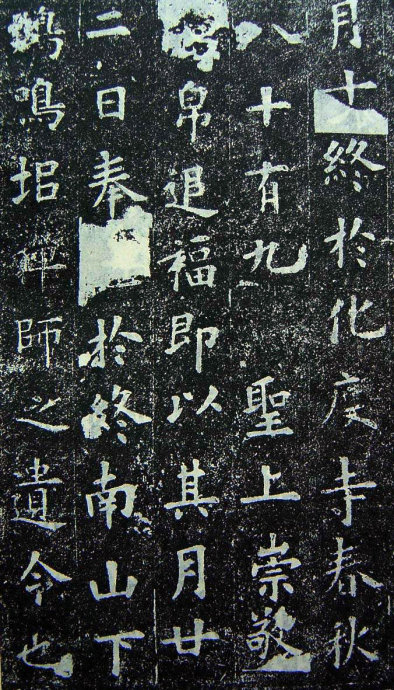 月十終於化度寺春秋
八十有九聖上崇敬
帛追福即以其月廿
二日奉於終南山下
鳴堆禪師之遺令也